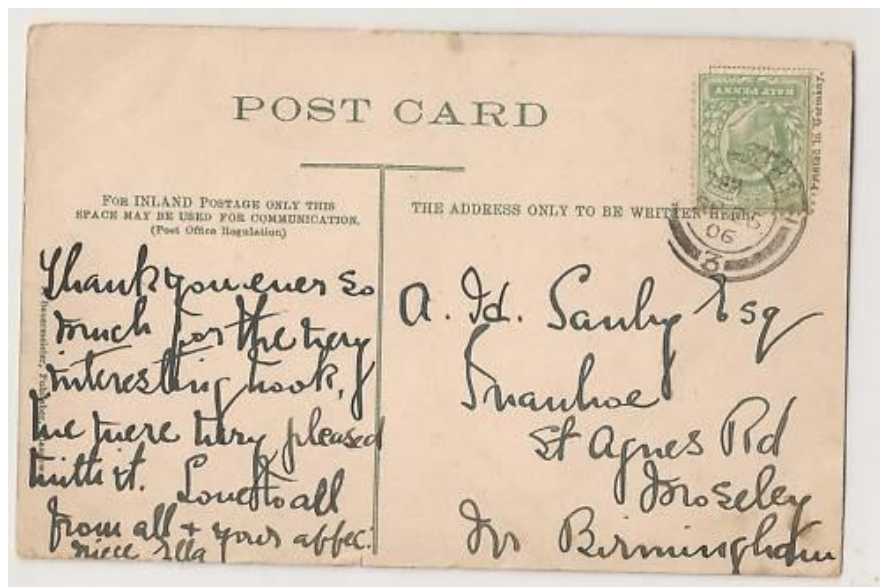 POST CARD
FOR INLAND POSTAGE ONLY THIS
SPACE MAY BE USED FOR COMMUNICATION.
(Post Office Regulation)
THE ADDRESS ONLY TO BE WRITTEN HERE.
HALF PENNY
Printed in Germany.
06
3
Thank you ever so
much for the very
interesting book,
we were very pleased
with it. Love to all
from all + yours affec:
niece Ella
A. Esq
Ivanhoe
St Agnes Rd
Moseley
Nr Birmingham